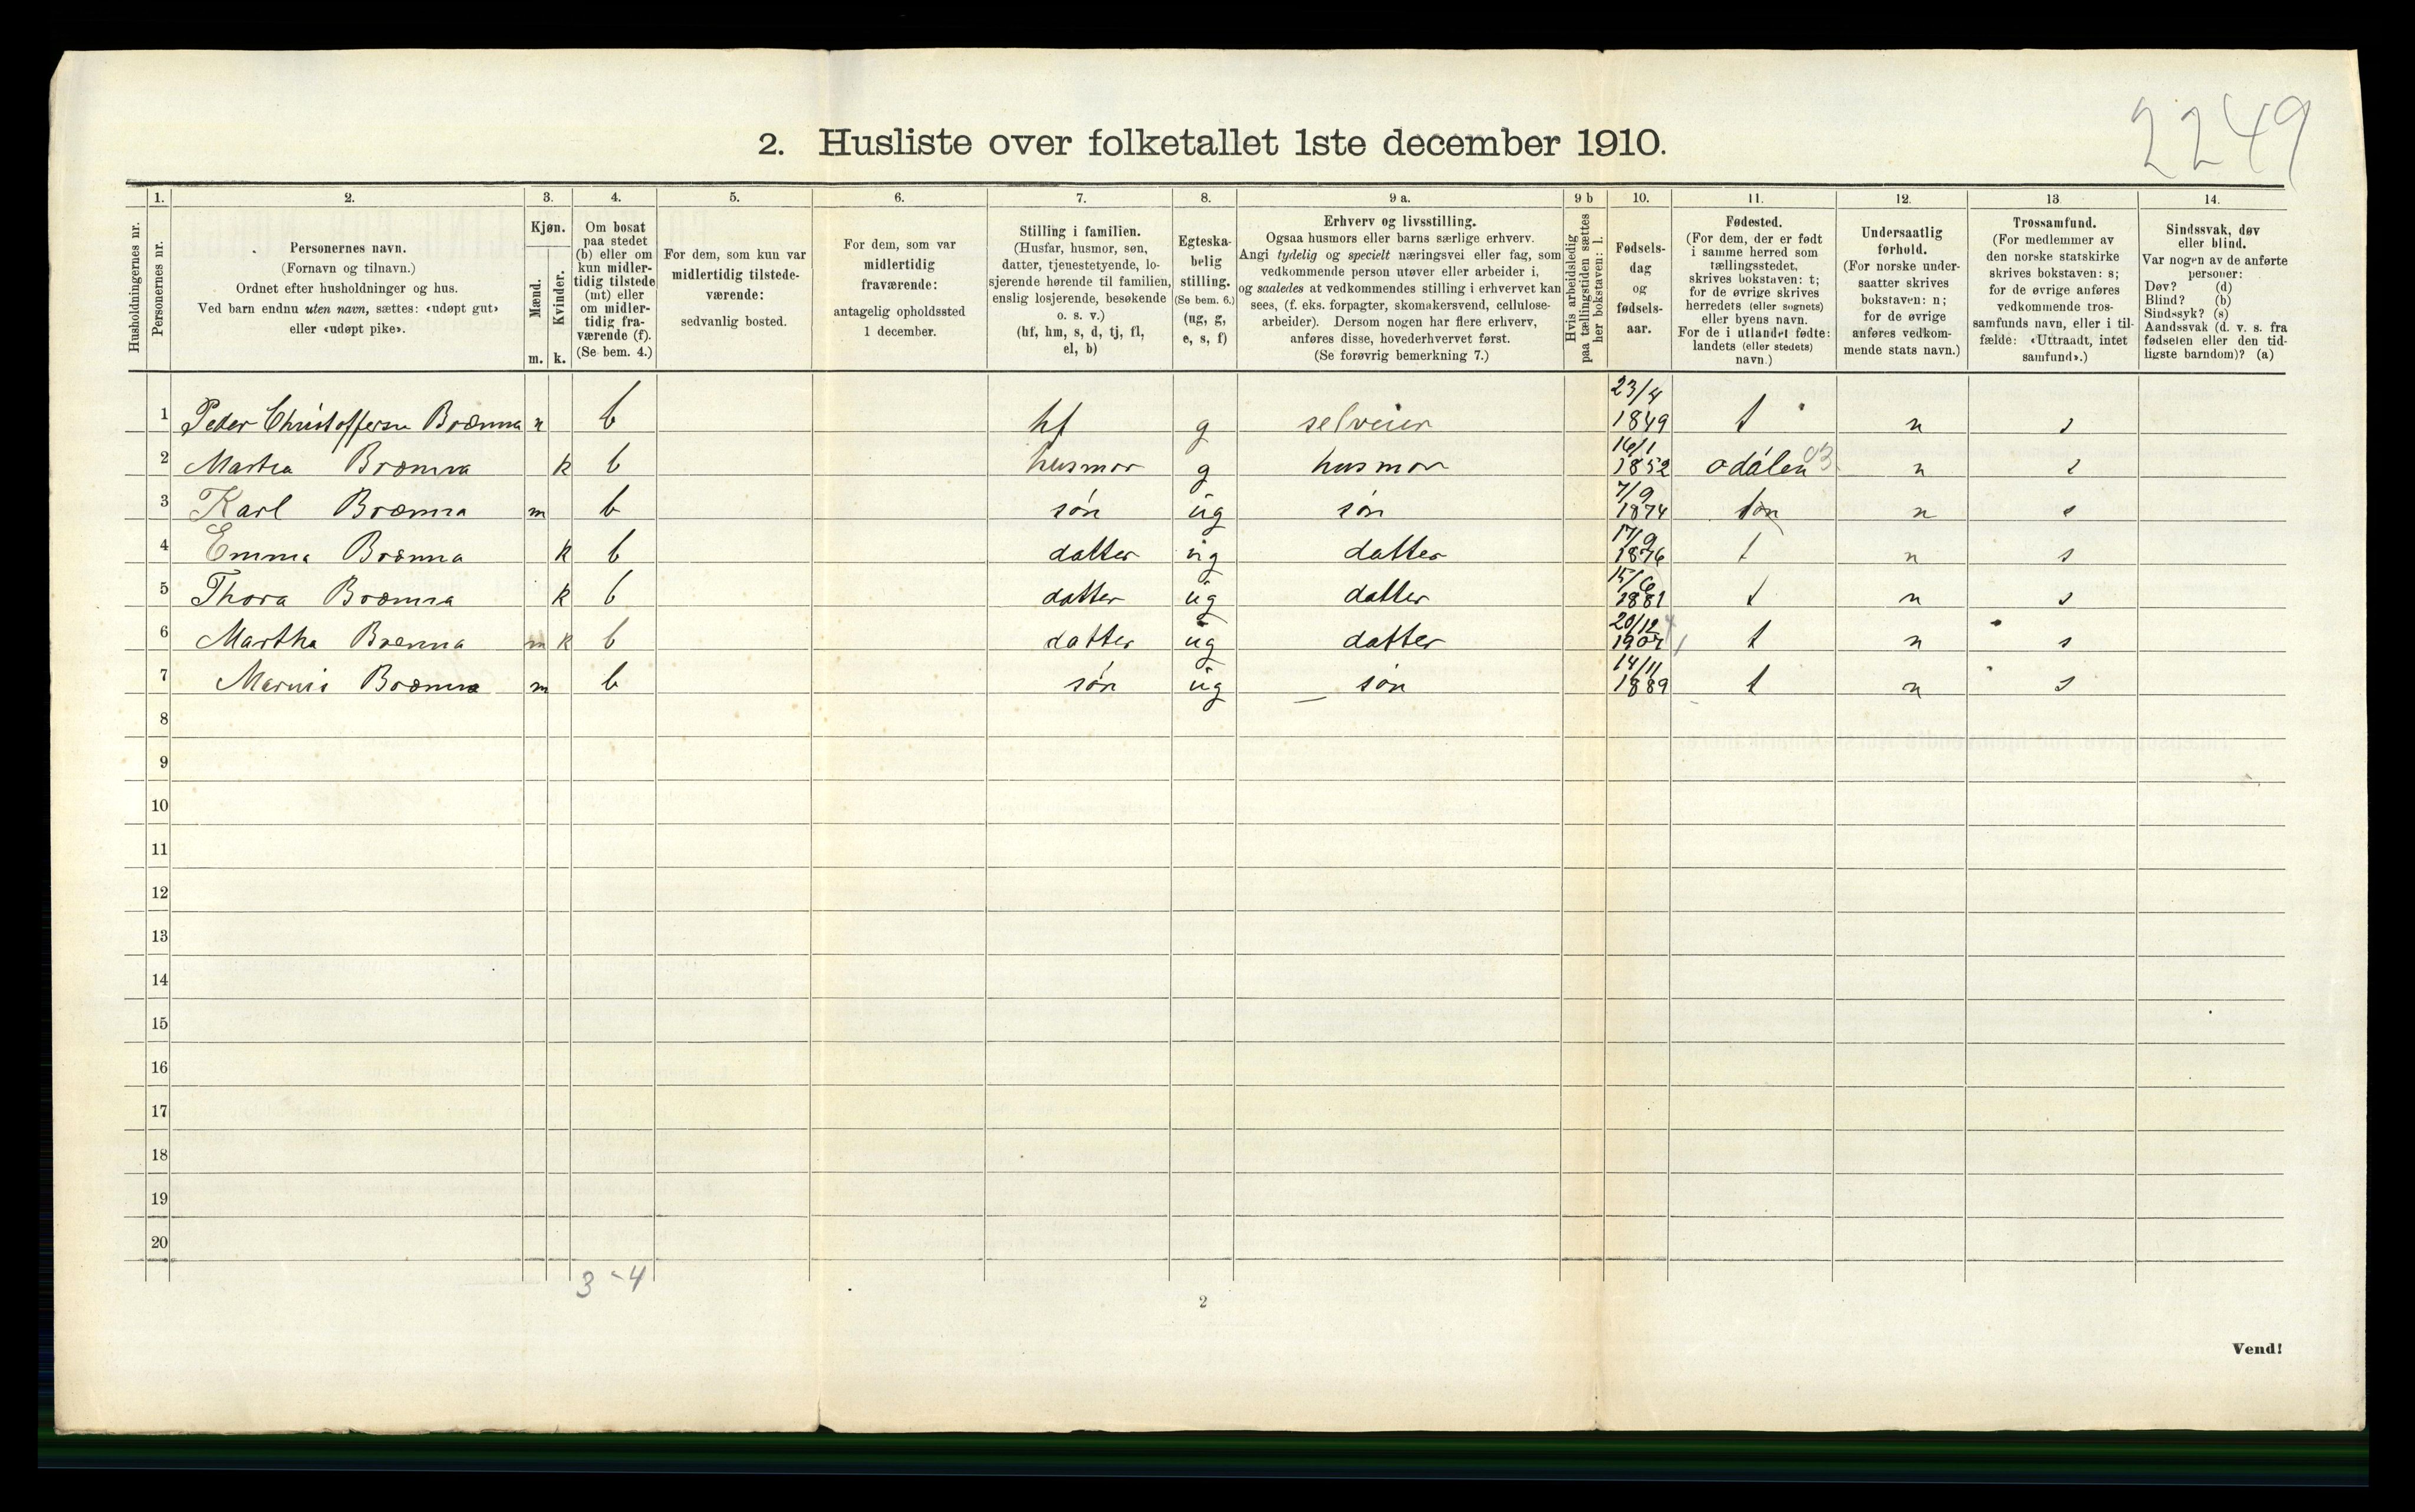 2249
2. Husliste over folketallet 1ste december 1910.
Husholdningernes nr.
1.
Personernes nr.
2.
Personernes navn.
(Fornavn og tilnavn.)
Ordnet efter husholdninger og hus.
Ved barn endnu uten navn, sættes: «udøpt gut»
eller «udøpt pike».
3.
Kjøn.
Mænd.
Kvinder.
m. k.
4.
Om bosat
paa stedet
(b) eller om
kun midler-
tidig tilstede
(mt) eller
om midler-
tidig fra-
værende (f).
(Se bem. 4.)
5.
For dem, som kun var
midlertidig tilstede-
værende:
sedvanlig bosted.
6.
For dem, som var
midlertidig
fraværende:
antagelig opholdssted
1 december.
7.
Stilling i familien.
(Husfar, husmor, søn,
datter, tjenestetyende, lo-
sjerende hørende til familien,
enslig losjerende, besøkende
o. s. v.)
(hf, hm, s, d, tj, fl,
el, b)
8.
Egteska-
belig
stilling.
(Se bem. 6.)
(ug, g,
e, s, f)
9 a.
Erhverv og livsstilling.
Ogsaa husmors eller barns særlige erhverv.
Angi tydelig og specielt næringsvei eller fag, som
vedkommende person utøver eller arbeider i,
og saaledes at vedkommendes stilling i erhvervet kan
sees, (f. eks. forpagter, skomakersvend, cellulose-
arbeider). Dersom nogen har flere erhverv,
anføres disse, hovederhvervet først.
(Se forøvrig bemerkning 7.)
9 b
Hvis arbeidsledig
paa tællingstiden sættes
her bokstaven: l.
10.
Fødsels-
dag
og
fødsels-
aar.
11.
Fødested.
(For dem, der er født
i samme herred som
tællingsstedet,
skrives bokstaven: t;
for de øvrige skrives
herredets (eller sognets)
eller byens navn.
For de i utlandet fødte:
landets (eller stedets)
navn.)
12.
Undersaatlig
forhold.
(For norske under-
saatter skrives
bokstaven: n;
for de øvrige
anføres vedkom-
mende stats navn.)
13
Trossamfund.
(For medlemmer av
den norske statskirke
skrives bokstaven: s;
for de øvrige anføres
vedkommende tros-
samfunds navn, eller i til-
fælde: «Uttraadt, intet
samfund».)
14.
Sindssvak, døv
eller blind.
Var nogen av de anførte
personer:
Døv? (d)
Blind? (b)
Sindssyk? (s)
Aandssvak (d. v. s. fra
fødselen eller den tid-
ligste barndom)? (a)
1 Peder Christoffersen Brænna b hf g selveier 23/4 1849 t n s
2 Brænna k b husmor g husmor 1852 odalen 03 n s
3 Karl Brænna m b søn ug søn 7/9 1874 n s
4 Emma Brænna k b datter ug datter 17/9 1876 t n s
5 Thora Brænna k b datter ug datter 15/6 1881 t n s
6 Martha Brænna m k b datter ug datter 20/12 t n s
7 Brænna m b søn ug søn 14/11 1889 t n s
8
9
10
11
12
13
14
15
16
17
18
19
20
3-4
2
Vend!